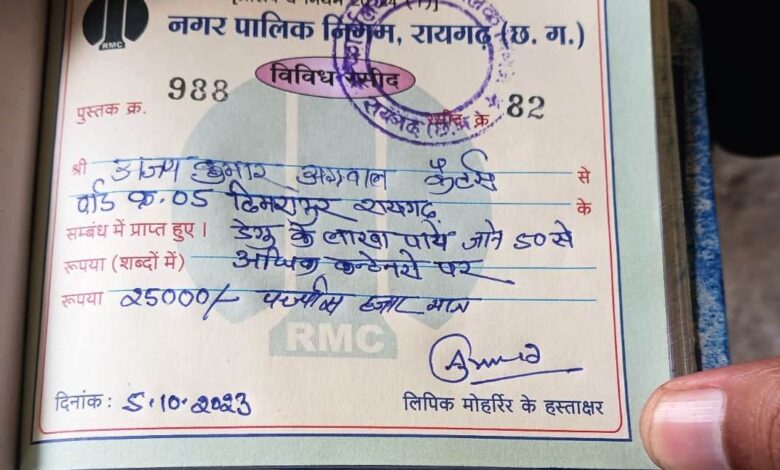 RMC
नगर पालिक निगम, रायगढ़ (छ. ग.)
विविध रसीद
पुस्तक क्र. 988
रसीद क्र. 82
श्री अजय कुमार अग्रवाल कैटर्स से
वार्ड क्र. 05 रायगढ़ के
सम्बंध में प्राप्त हुए। डेंगू के लारवा पाये जाने 50 से
रूपया (शब्दों में) अधिक कन्टेनरो पर
रूपया 25000/- पच्चीस हजार मात्र
RMC
दिनांक : 5.10.2023
लिपिक मोहर्रिर के हस्ताक्षर